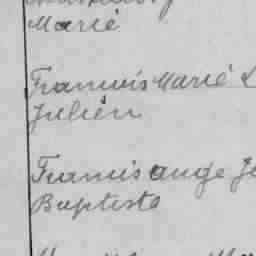 Marie
Francois Marie
Julien
Francis ange Je
Baptiste